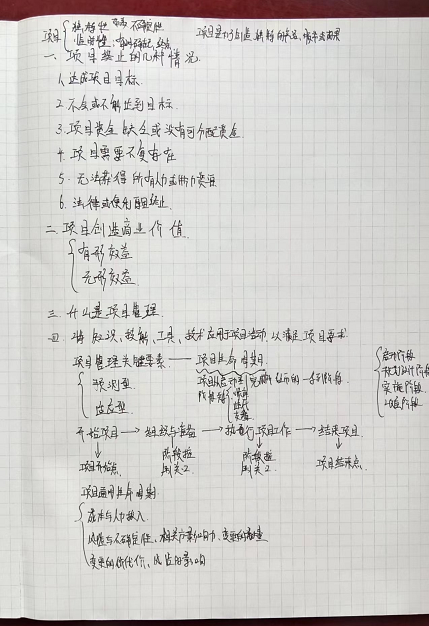 项目 { 独特性 不确定性 项目是为了创造独特的产品、服务或成果
临时性：有明确起、终点
一、项目终止的几种情况
1. 达成项目目标
2. 不会或不能达到目标
3. 项目资金缺乏或没有可分配资金
4. 项目需要不复存在
5. 无法获得所有人力或物力资源
6. 法律或便利原因终止
二、项目创造商业价值
有形效益
无形效益
三、什么是项目管理
四、将知识、技能、工具、技术应用于项目活动，以满足项目要求
项目管理关键要素 — 项目生命周期 启动阶段
预测型 项目从启动到完成所经历的一系列阶段 规划阶段
适应型 阶段 迭代 实施阶段
收尾阶段
开始项目 → 组织与准备 → 执行项目工作 → 结束项目
项目开始点 阶段 阶段 项目结束点
项目通用生命周期
成本与人力投入
风险与不确定性、相关方影响力、变更的
变更的代价